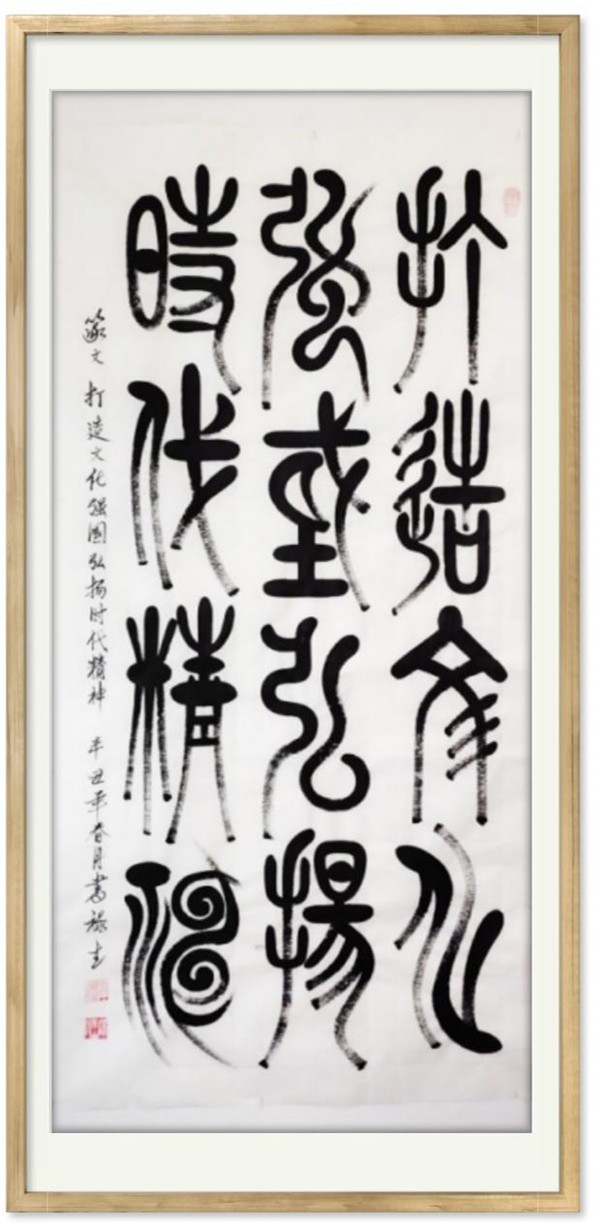 打造文化
强國弘揚
時代精神
篆文 打造文化强国弘扬时代精神 辛丑年春月書